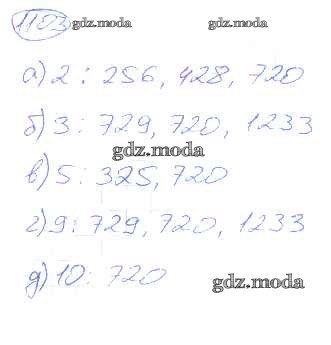 1103 gdz.moda gdz.moda
а) 2: 256, 428, 720
б) 3: 729, 720, 1233
gdz.moda
в) 5: 325, 720
г) 9: 729, 720, 1233
д) 10: 720
gdz.moda